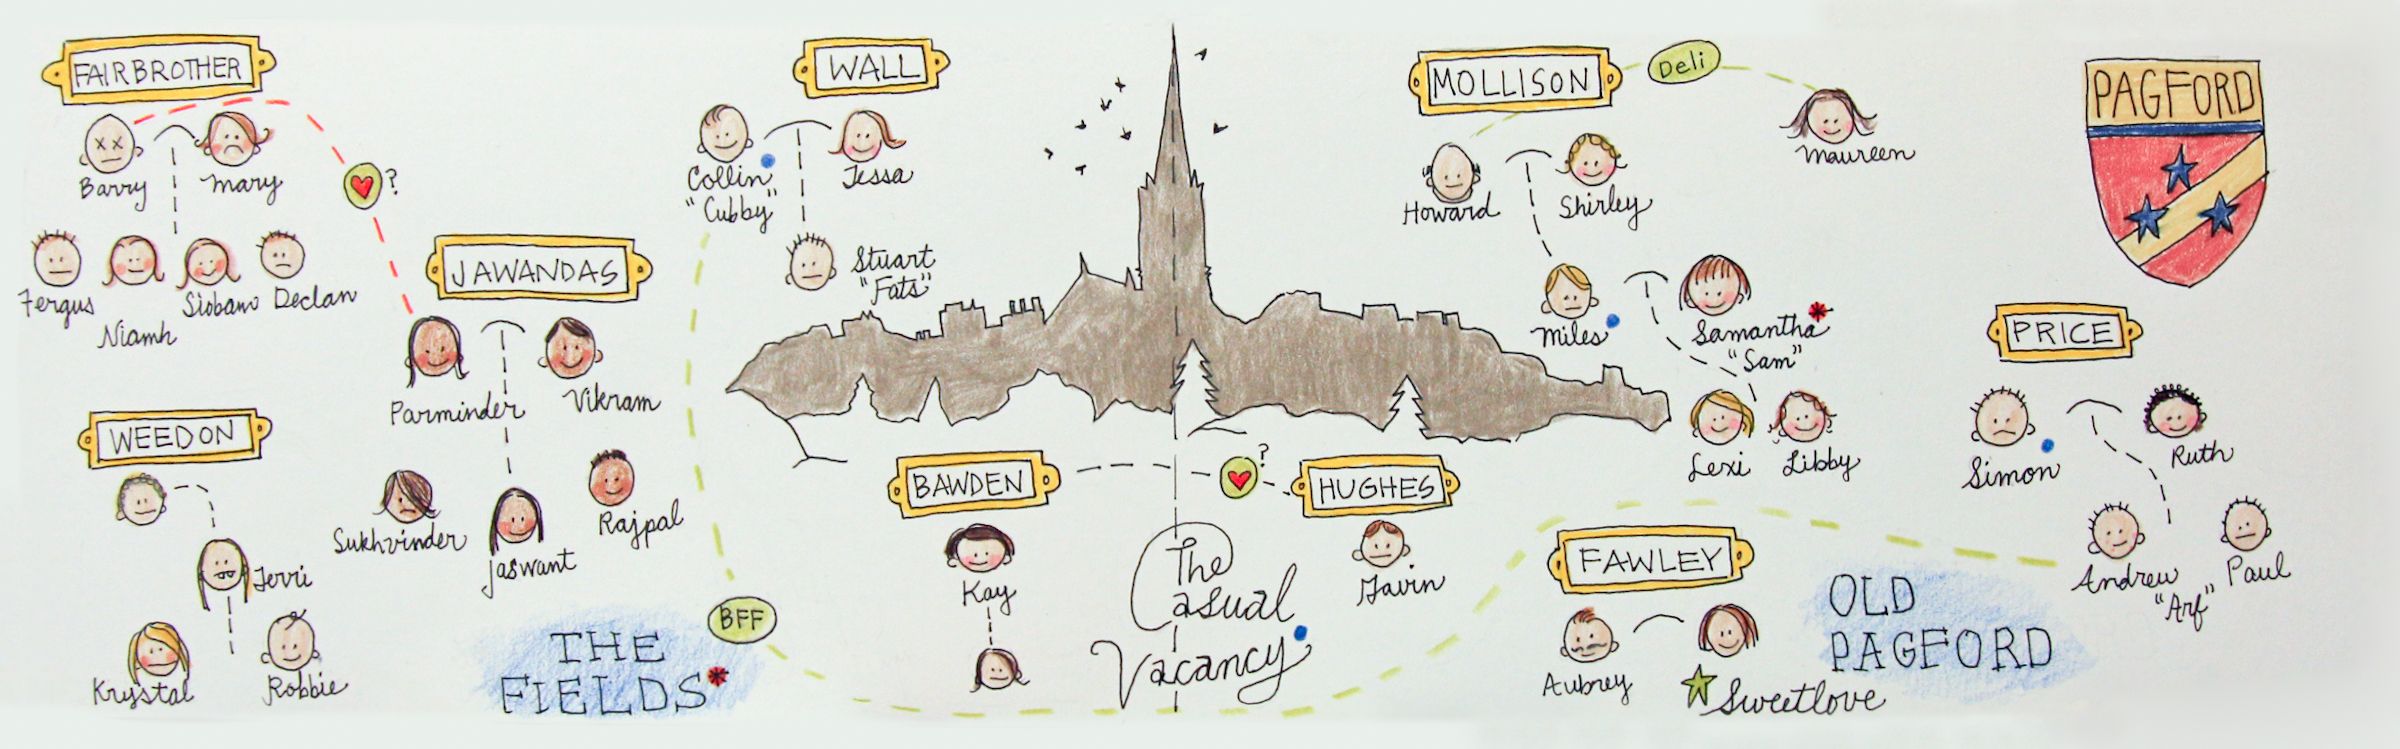 FAIRBROTHER
Barry
Mary
?
Fergus
Niamh
Siobann
Declan
JAWANDAS
Parminder
Vikram
Sukhvinder
Jaswant
Rajpal
WEEDON
Terri
Krystal
Robbie
THE
FIELDS*
WALL
Collin
"Cubby"
Tessa
Stuart
"Fats"
BFF
BAWDEN
Kay
?
HUGHES
Gavin
The
Casual
Vacancy
MOLLISON
Deli
Maureen
Howard
Shirley
Miles
Samantha*
"Sam"
Lexi
Libby
FAWLEY
Aubrey
Sweetlove
OLD
PAGFORD
PAGFORD
PRICE
Simon
Ruth
Andrew
"Arf"
Paul